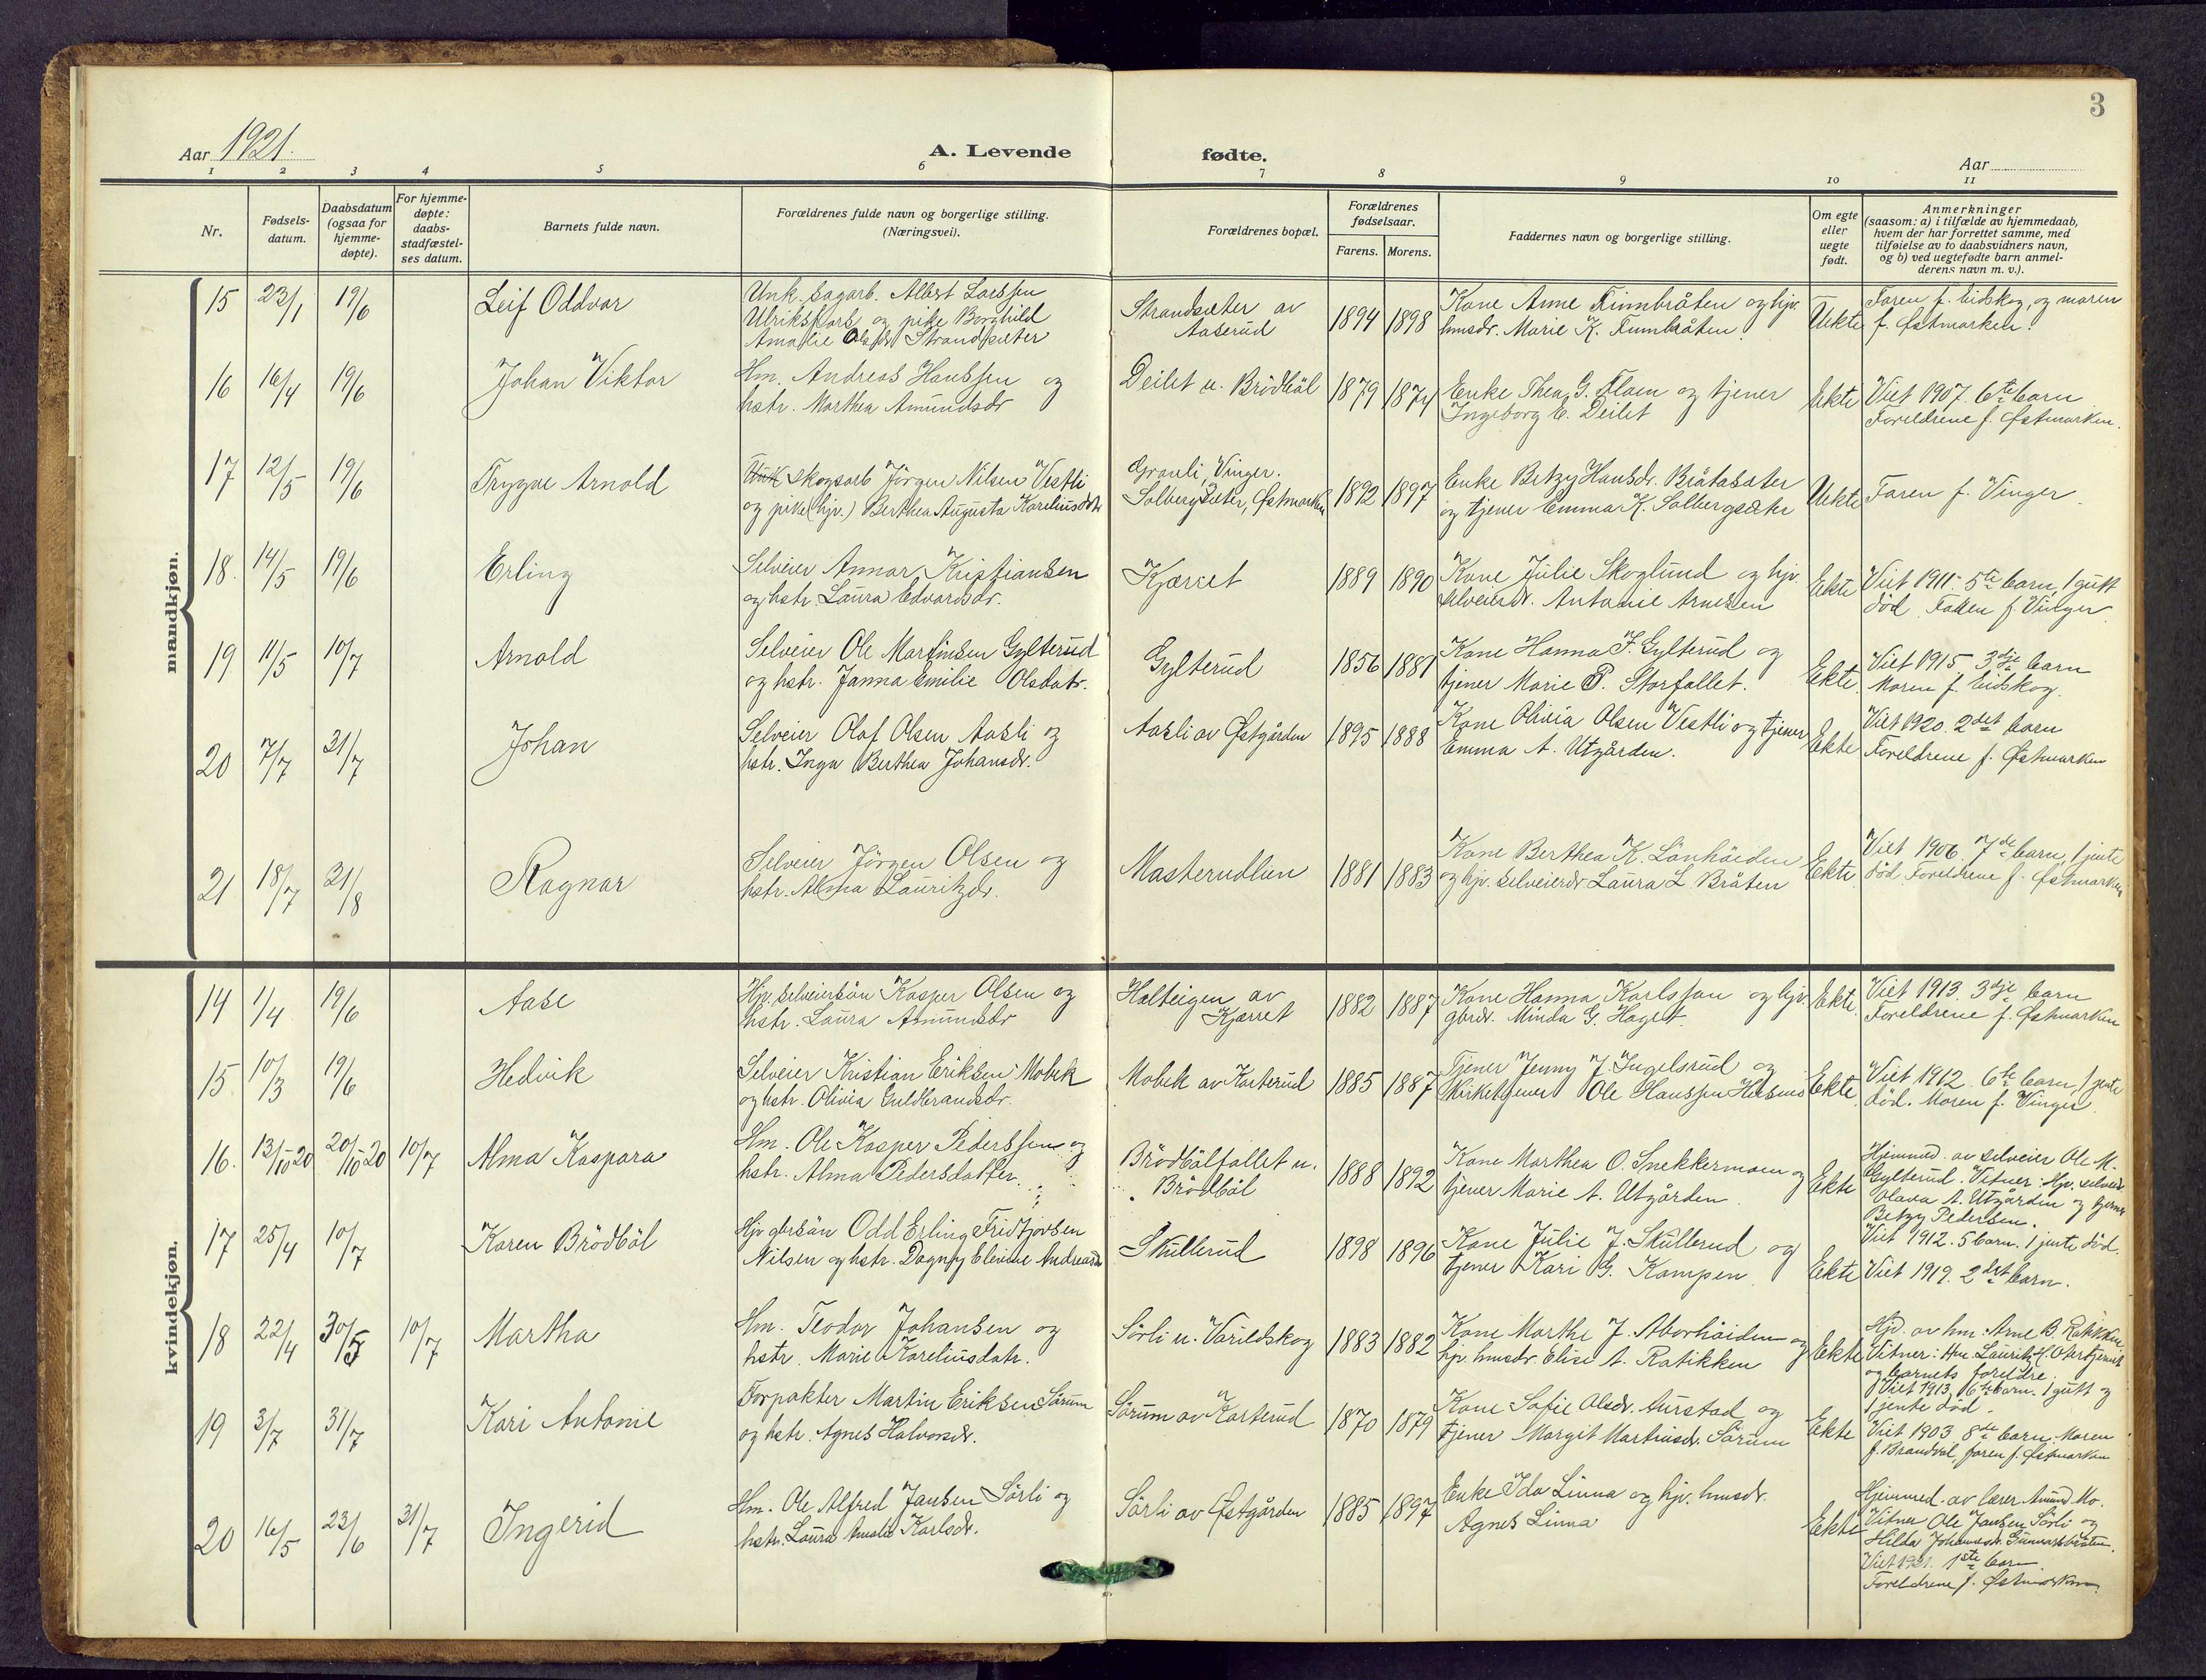 3
Aar 1921.
A. Levende fødte.
Aar
1 2 3 4 5 6 7 8 9 10 11
Nr.
Fødsels-
datum.
Daabsdatum
(ogsaa for
hjemme-
døpte).
For hjemme-
døpte:
daabs-
stadfæstel-
ses datum.
Barnets fulde navn.
Forældrenes fulde navn og borgerlige stilling.
(Næringsvei).
Forældrenes bopæl.
Forældrenes
fødselsaar.
Farens. Morens.
Faddernes navn og borgerlige stilling.
Om egte
eller
uegte
født.
Anmerkninger
(saasom: a) i tilfælde av hjemmedaab,
hvem der har forrettet samme, med
tilføielse av to daabsvidners navn,
og b) ved uegtefødte barn anmel-
derens navn m. v.).
mandkjøn.
15 23/1 19/6 Leif Oddvar
Unk. sagarb. Albert Larssen
Ulriksfors og pike Borghild
Amalie Olsdr Strandsæter
Strandsæter av
Aaserud
1894 1898
Kone Anne Finnbråten og hjv.
hmsdr. Marie K. Finnbråten.
Uekte
Faren f. Eidskog, og moren
f. Østmarken.
16 16/4 19/6 Johan Viktor
Hm. Andreas Hanssen og
hstr. Marthea Amundsdr
Deilet u. Brödböl
1879 1874
Enke Thea G. Floen og tjener
Ingeborg E. Deilet
Ekte
Viet 1907. 6te barn
Foreldrene f. Østmarken.
17 12/5 19/6 Trygve Arnold
Unk skogsarb Jörgen Nilsen Vestli
og pike (hjv.) Berthea Augusta Kareliusdtr
Granli, Vinger.
Solbergsæter, Østmarken
1892 1897
Enke Betzy Hansdr. Bråtasæter
og tjener Emma K. Solbergsæter
Uekte
Faren f. Vinger.
18. 14/5 19/6 Erling
Selveier Annar Kristiansen
og hstr. Laura Edvardsdr.
Kjærret
1889 1890
Kone Julie Skoglund og hjv.
selveierdr. Antonie Arnesen
Ekte
Viet 1911 - 5te barn, 1 gutt
död. Faren f Vinger.
19 11/5 10/7 Arnold
Selveier Ole Martinsen Gylterud
og hstr. Janna Emilie Olsdatr.
Gylterud
1856 1881
Kone Hanna F. Gylterud og
tjener Marie P. Storfallet.
Ekte
Viet 1915 3dje barn
Moren f. Eidskog.
20 7/7 31/7 Johan
Selveier Olaf Olsen Aasli og
hstr. Inga Berthea Johansdr.
Aasli av Østgården
1895 1888
Kone Olivia Olsen Vestli og tjener
Emma A. Utgården.
Ekte
Viet 1920. 2det barn
Foreldrene f. Østmarken
21 18/7 21/8 Ragnar
Selveier Jörgen Olsen og
hstr. Alma Lauritzdr.
Masterudlien
1881 1883
Kone Berthea K. Lönhöiden
og hjv. selveierdr Laura L. Bråten
Ekte
Viet 1906. 7de barn, 1 jente
död. Foreldrene f. Østmarken
kvindekjøn.
14 1/4 19/6 Aase
Hjv. selveiersön Kasper Olsen og
hstr. Laura Amundsdr
Halteigen av
Kjærret
1882 1887
Kone Hanna Karlsson og hjv.
gbrdr. Minda G. Haget.
Ekte.
Viet 1913. 3dje barn
Foreldrene f. Østmarken
15 10/3 19/6 Hedvik
Selveier Kristian Eriksen Mobek
og hstr. Olivia Guldbrandsdr.
Mobek av Karterud
1885 1887
Tjener Jenny J. Ingelsrud og
Kirketjener Ole Hanssen
Ekte
Viet 1912 6te barn, 1 jente
död. Moren f. Vinger
16. 13/10-20 20/10-20 10/7 Alma Kaspara
Hm. Ole Kasper Pederssen og
hstr. Alma Pedersdatter.
Brödbölfallet u.
Brödböl
1888 1892
Kone Marthea O. Snekkermoen og
tjener Marie A. Utgården
Ekte
Hjemmed. av selveier Ole M.
Gylterud. Vitner: Hjv. selveierdr
Olava A. Utgården og tjener
Betzy Pedersen.
Viet 1912. 5 barn. 1 jente död.
17 25/4 10/7 Karen Brödböl
Hjv gbrsön Odd Erling Fridtjovsen
Nilsen og hstr. Dagny Elevine Andreasdr
Skullerud
1898 1896
Kone Julie J. Skullerud og
tjener Kari G. Kampen
Ekte
Viet 1919. 2det barn.
18 22/4 30/5 10/7 Martha
Hm. Teodor Johansen og
hstr. Marie Kareliusdatr.
Sörli u. Varildskog
1883 1882
Kone Marthe J. Aborhöiden og
hjv. hmsdr. Elise A. Ratikken
Ekte
Hjd. av hm. Arne B. Ratikken.
Vitner: Hm. Lauritz H. Otertjernet
og barnets foreldre.
Viet 1913, 6te barn. 1 gutt og
1 jente död.
19 3/7 31/7 Kari Antonie
Forpakter Martin Eriksen Sörum
og hstr. Agnes Halvorsdr.
Sörum av Karterud
1870 1879
Kone Sofie Olsdr. Aurstad og
tjener Margit Martinsdr. Sörum
Ekte
Viet 1903 8de barn. Moren
f. Brandval, faren f. Østmarken
20 16/5 23/6 31/7 Ingerid
Hm. Ole Alfred Jansen Sörli og
hstr. Laura Amalie Karlsdr.
Sörli av Østgården
1885 1897
Enke Ida Linna og hjv. hmsdr.
Agnes Linna
Ekte
Hjemmed. av lærer Amund Mo.
Vitner Ole Jansen Sörli og
Hilda Johannesdr. Gunnarsbråten.
Viet 1921. 1ste barn
Foreldrene f. Østmarken.